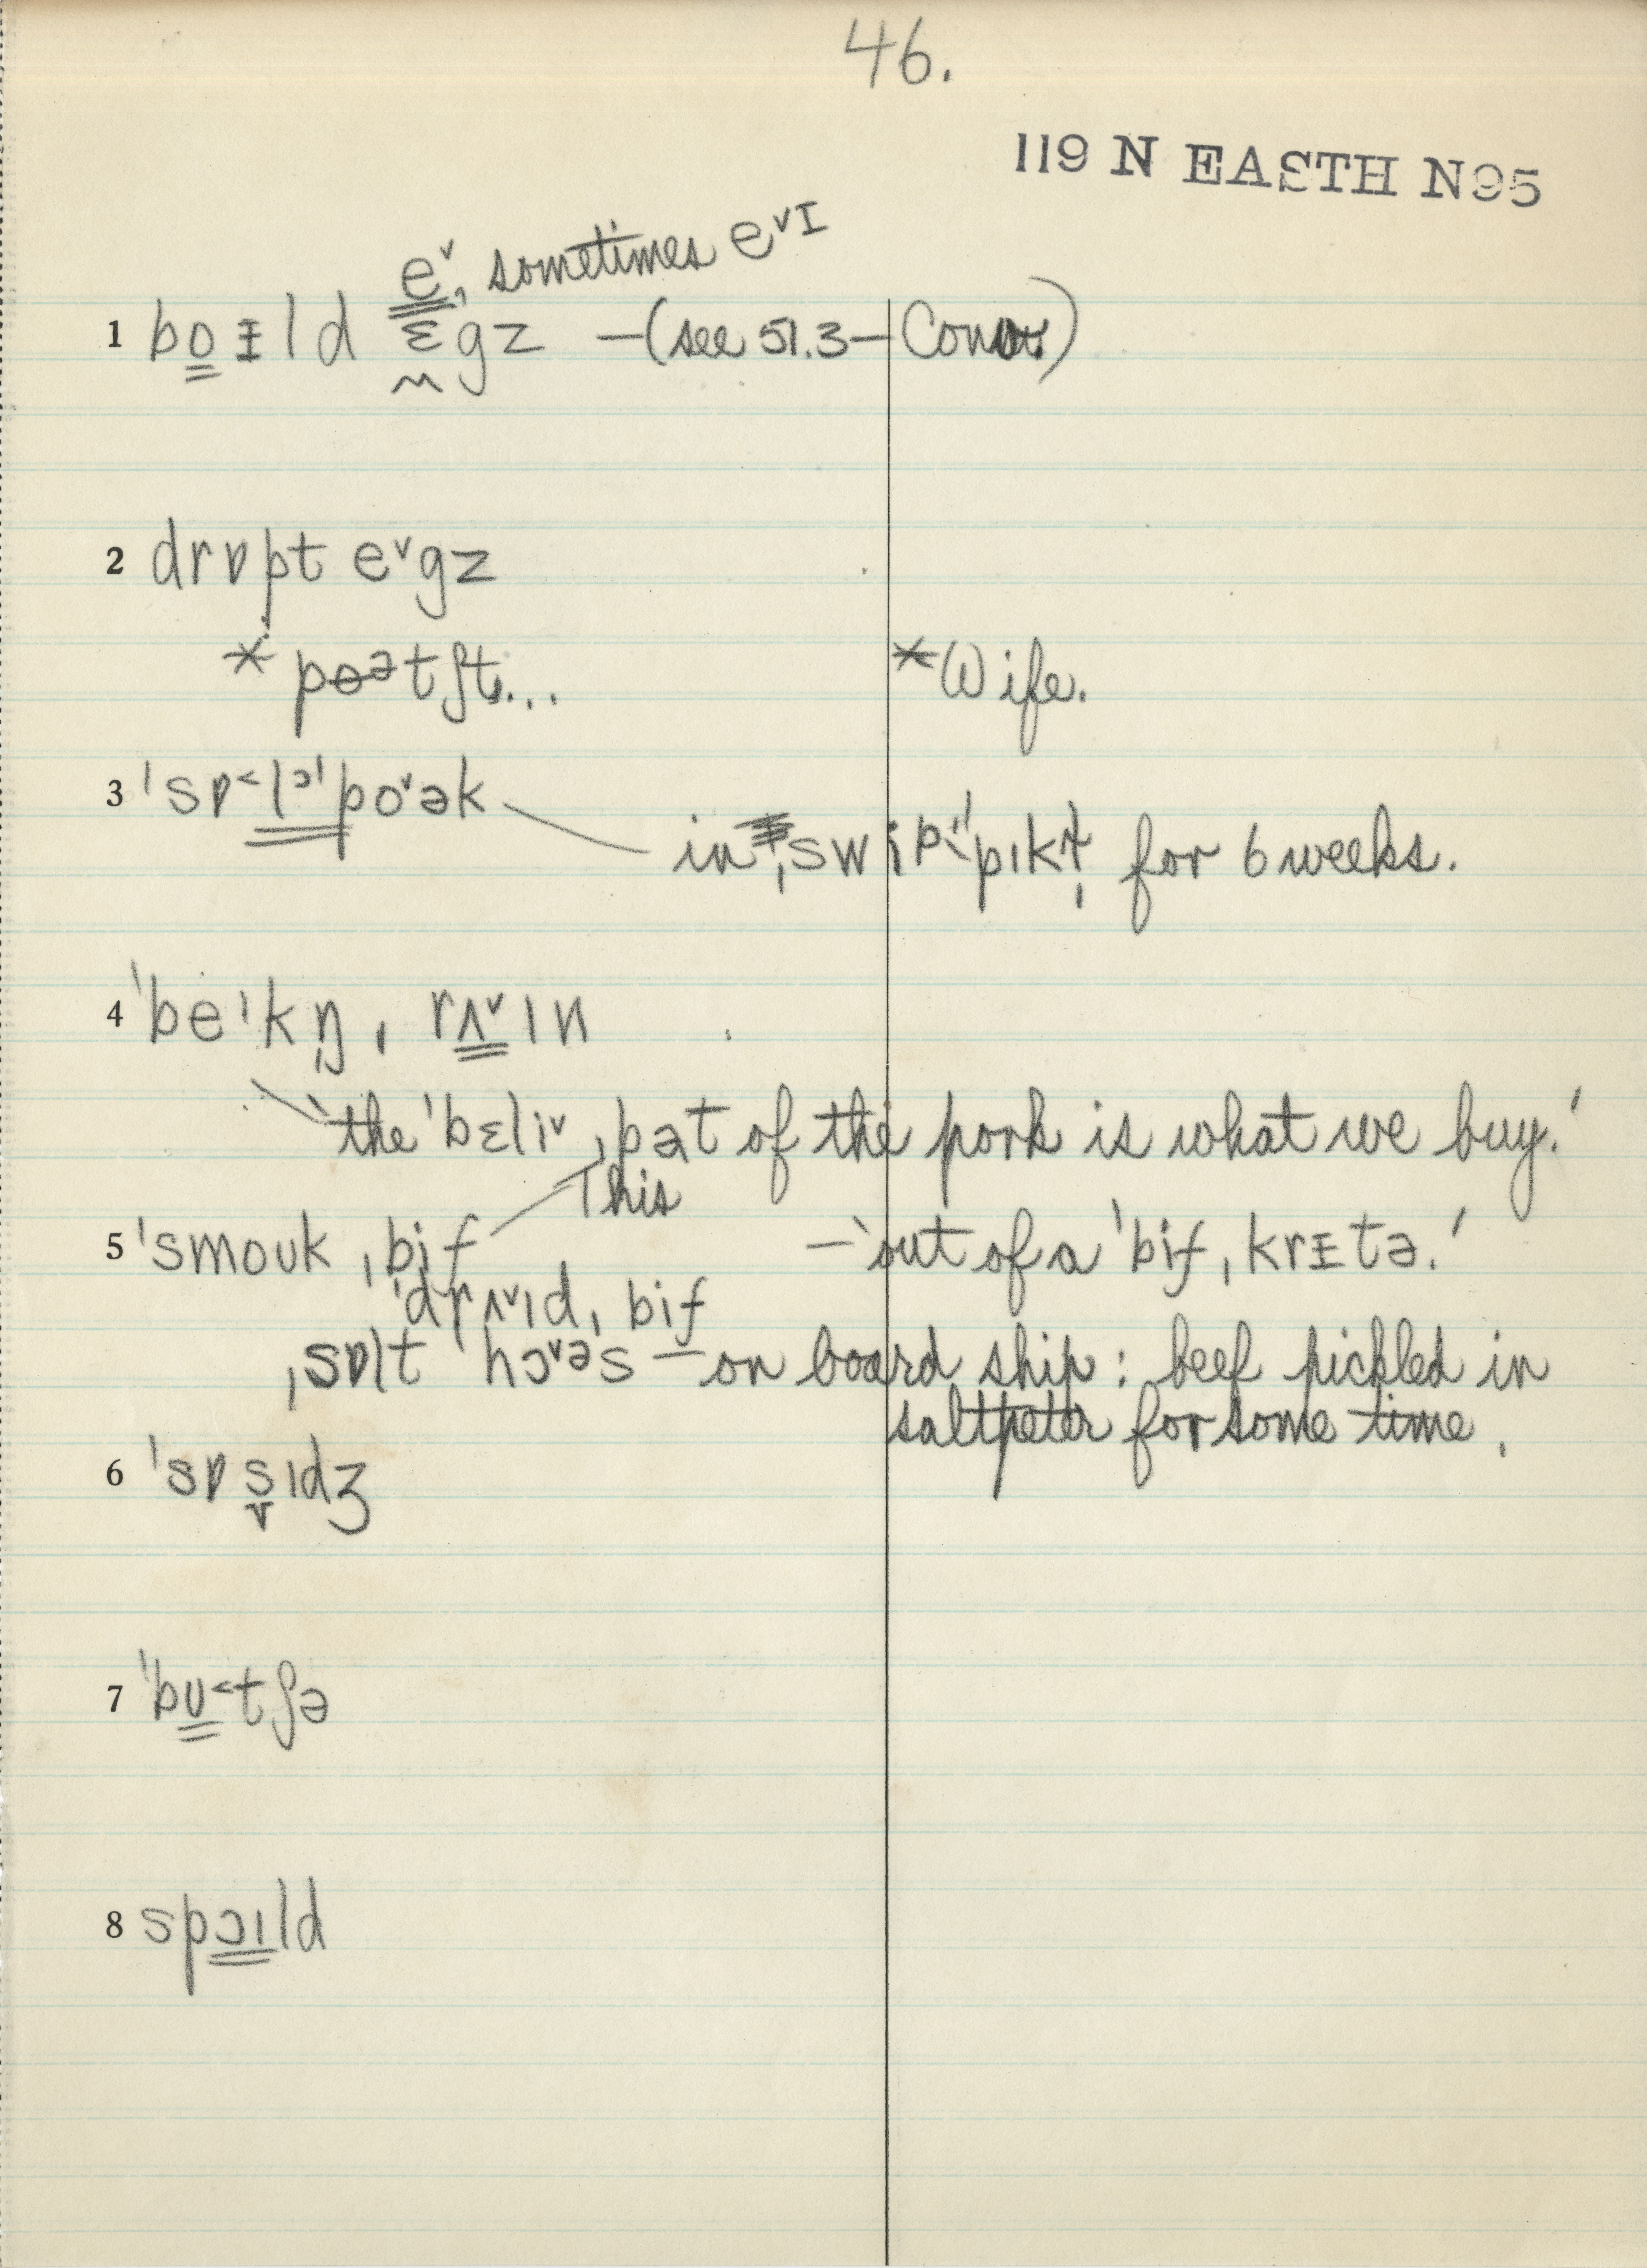 46.
119 N EASTH N95
eᵛ, sometimes eᵛɪ
1 boɪld ɛgz —(see 51.3—Conv.)
2 drɒpt eᵛgz
* poətʃt...
*Wife.
3 ˈsɒ˂lᵊˈpoᵛək
in ˌswiˈpɪkl̩ for 6 weeks.
4 ˈbeɪkŋ̩, rʌᵛɪn
'the ˈbɛliᵛ ˌpət of the pork is what we buy.'
This
5 ˈsmouk ˌbif
—'out of a ˈbif ˌkrɪtə.'
ˈdrʌᵛɪd ˌbif
ˌsɒlt ˈhɔᵛəs — on board ship: beef pickled in
saltpeter for some time.
6 ˈsɒs̬ɪdʒ
7 ˈbʊ˂tʃə
8 spɔɪld